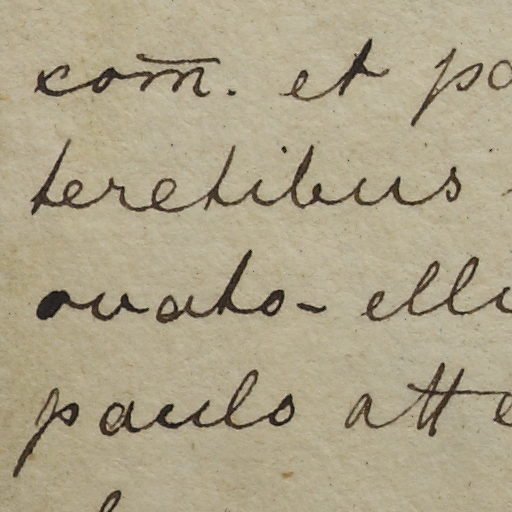 com̅. et pa
teretibus
ovato-elli
paulo atte